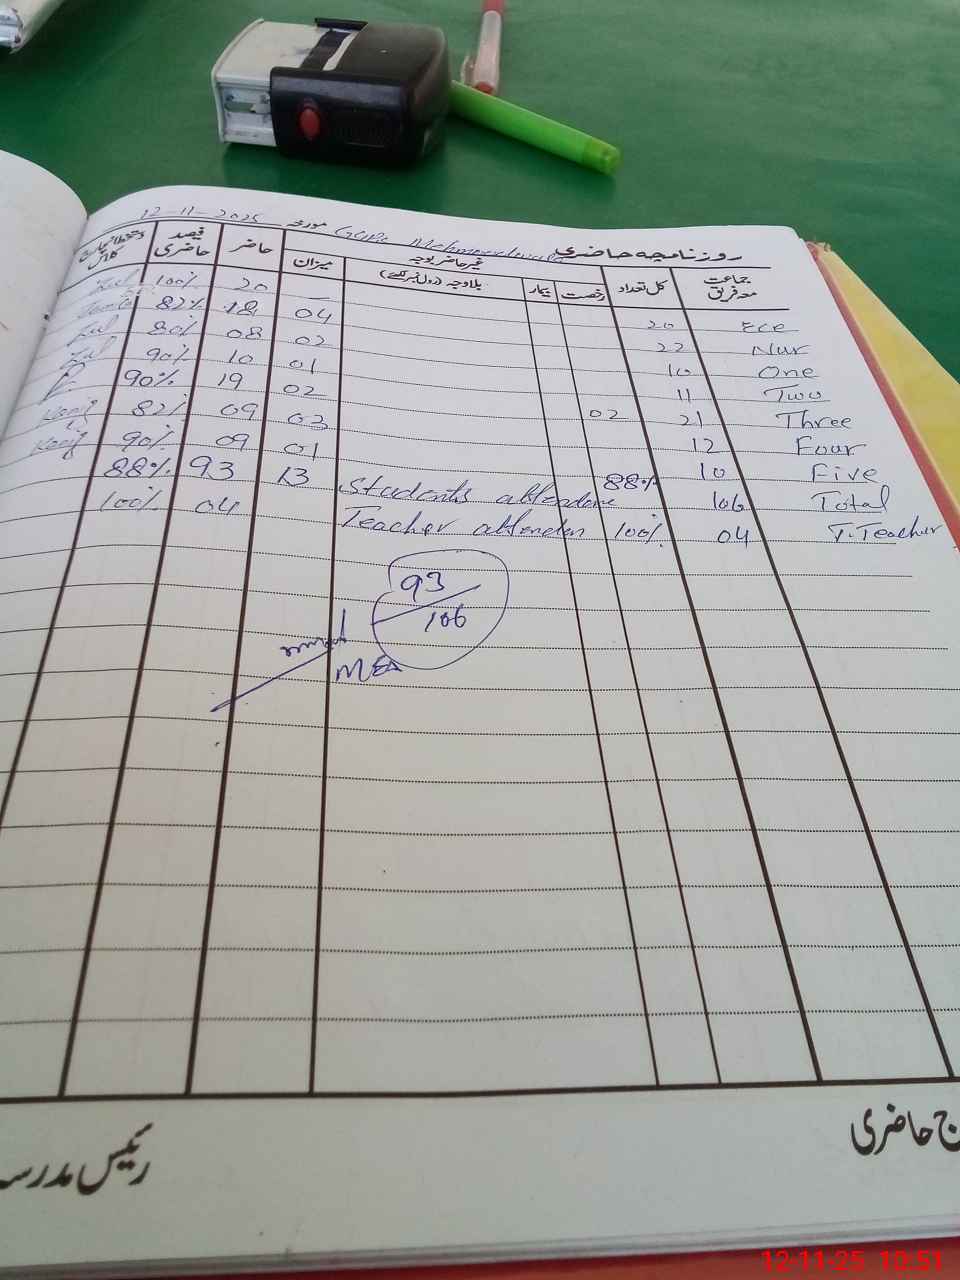 روزنامچہ حاضری GGPS مورخہ 12-11-2025
جماعت معہ فریق کل تعداد غیر حاضر بوجہ رخصت بیمار بلاوجہ (رول نمبر لکھیے) میزان حاضر فیصد حاضری دستخط انچارج کلاس
Ece 20 — 20 100%
Nur 22 04 18 82%
One 10 02 08 80%
Two 11 01 10 90%
Three 21 02 02 19 90%
Four 12 03 09 82%
Five 10 01 09 90%
Total 106 88% Students attendone 13 93 88%
T.Teacher 04 100% Teacher attenden 04 100%
93
106
MEA
ج حاضری
رئیس مدرسہ
12-11-25 10:51